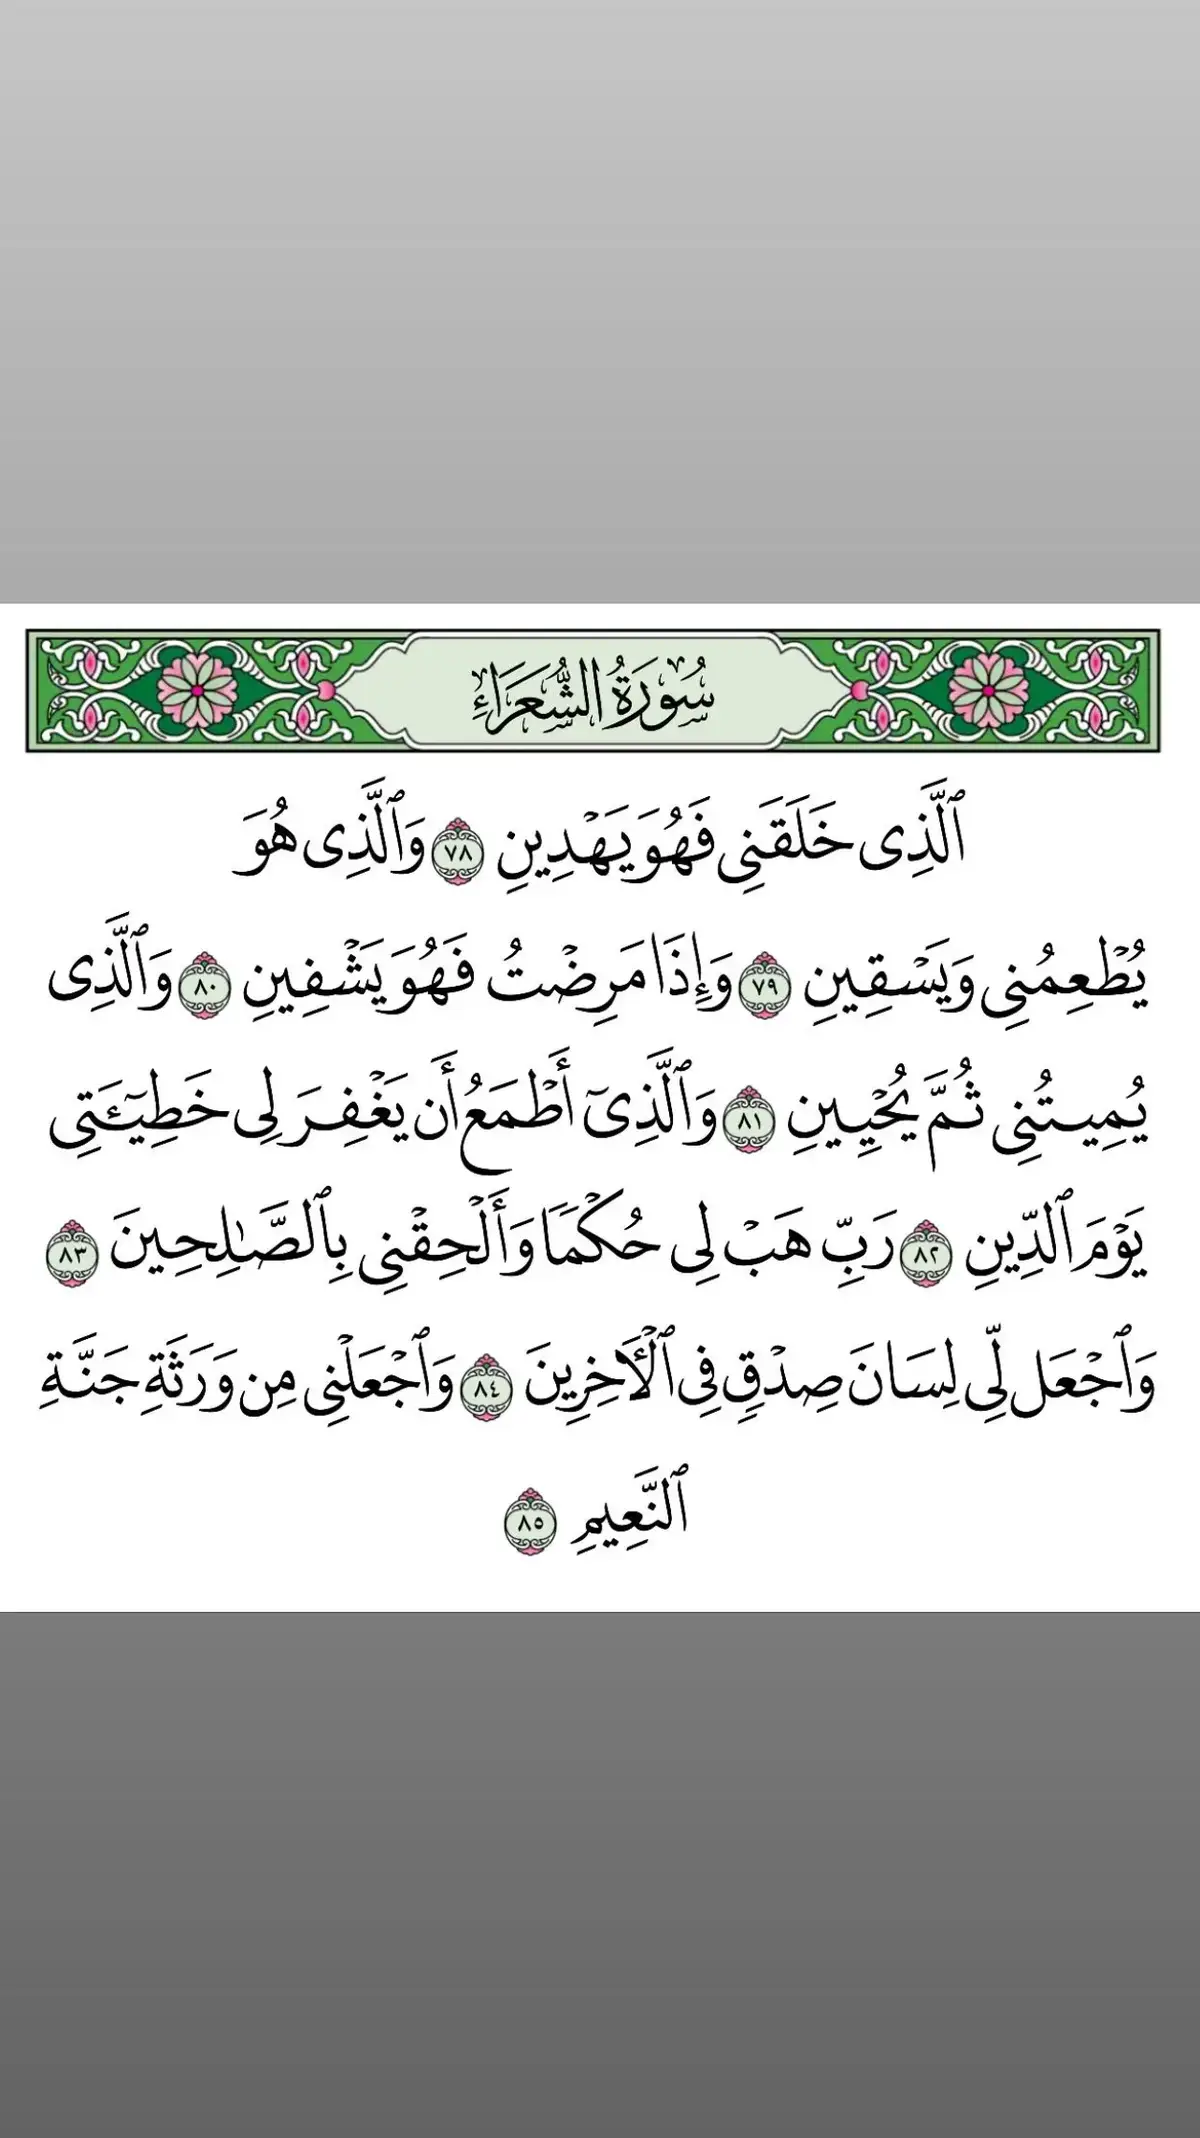 سُورَةُ الشُّعَرَاءِ
ٱلَّذِى خَلَقَنِى فَهُوَ يَهۡدِينِ ٧٨ وَٱلَّذِى هُوَ
يُطۡعِمُنِى وَيَسۡقِينِ ٧٩ وَإِذَا مَرِضۡتُ فَهُوَ يَشۡفِينِ ٨٠ وَٱلَّذِى
يُمِيتُنِى ثُمَّ يُحۡيِينِ ٨١ وَٱلَّذِىٓ أَطۡمَعُ أَن يَغۡفِرَ لِى خَطِيٓـَٔتِى
يَوۡمَ ٱلدِّينِ ٨٢ رَبِّ هَبۡ لِى حُكۡمًا وَأَلۡحِقۡنِى بِٱلصَّـٰلِحِينَ ٨٣
وَٱجۡعَل لِّى لِسَانَ صِدۡقٍ فِى ٱلۡأٓخِرِينَ ٨٤ وَٱجۡعَلۡنِى مِن وَرَثَةِ جَنَّةِ
ٱلنَّعِيمِ ٨٥